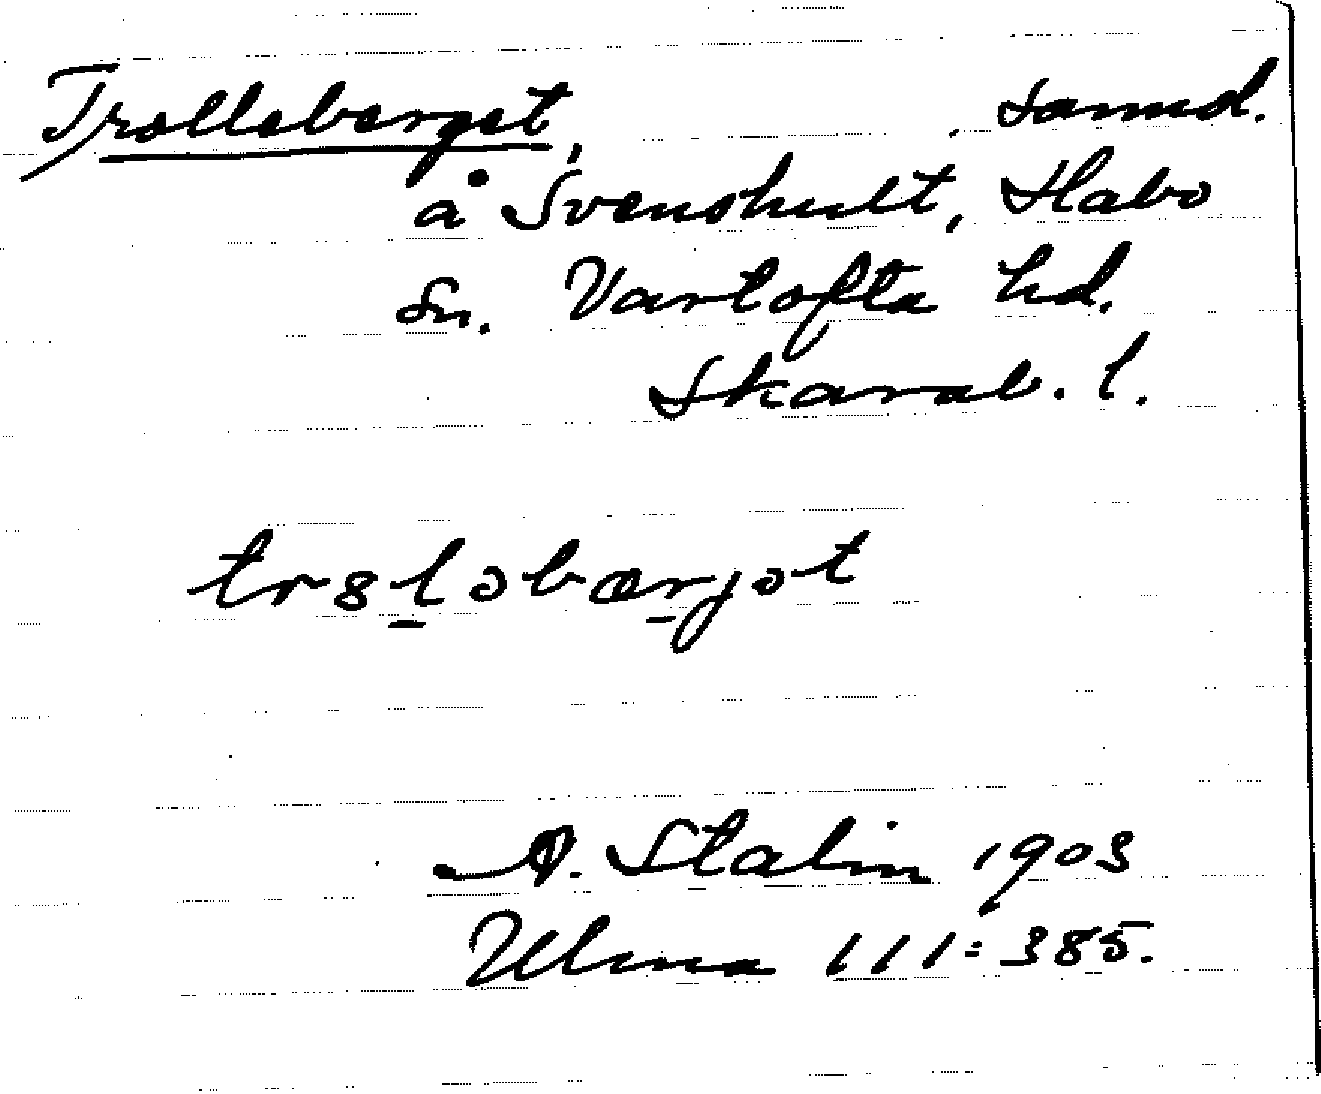 Trolleberget, , samd.
å Svenshult, Habo
sn. Vartofta hd.
Skarab. l.
tr8l̲əbær̲jət
A. Stalin 1903
Ulma 111:385.